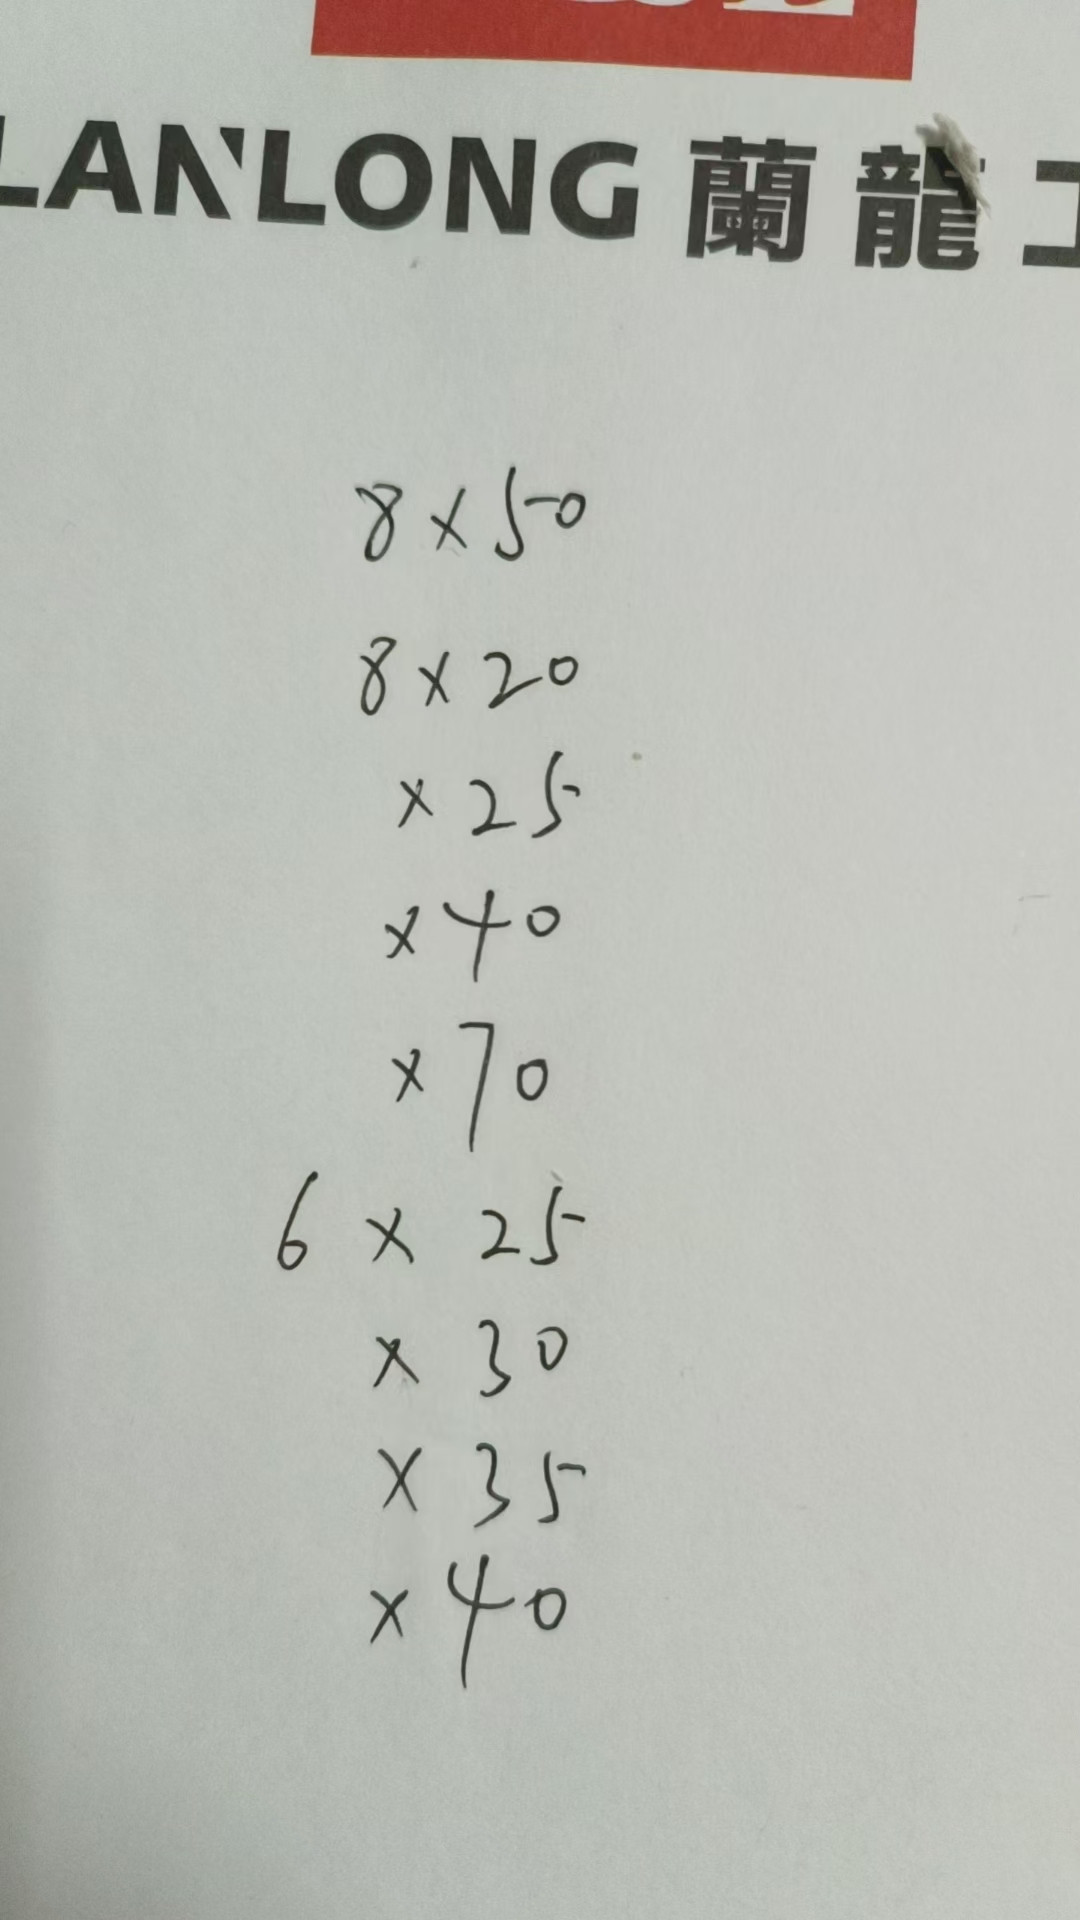 LANLONG 蘭龍工
8×50
8×20
×25
×40
×70
6×25
×30
×35
×40